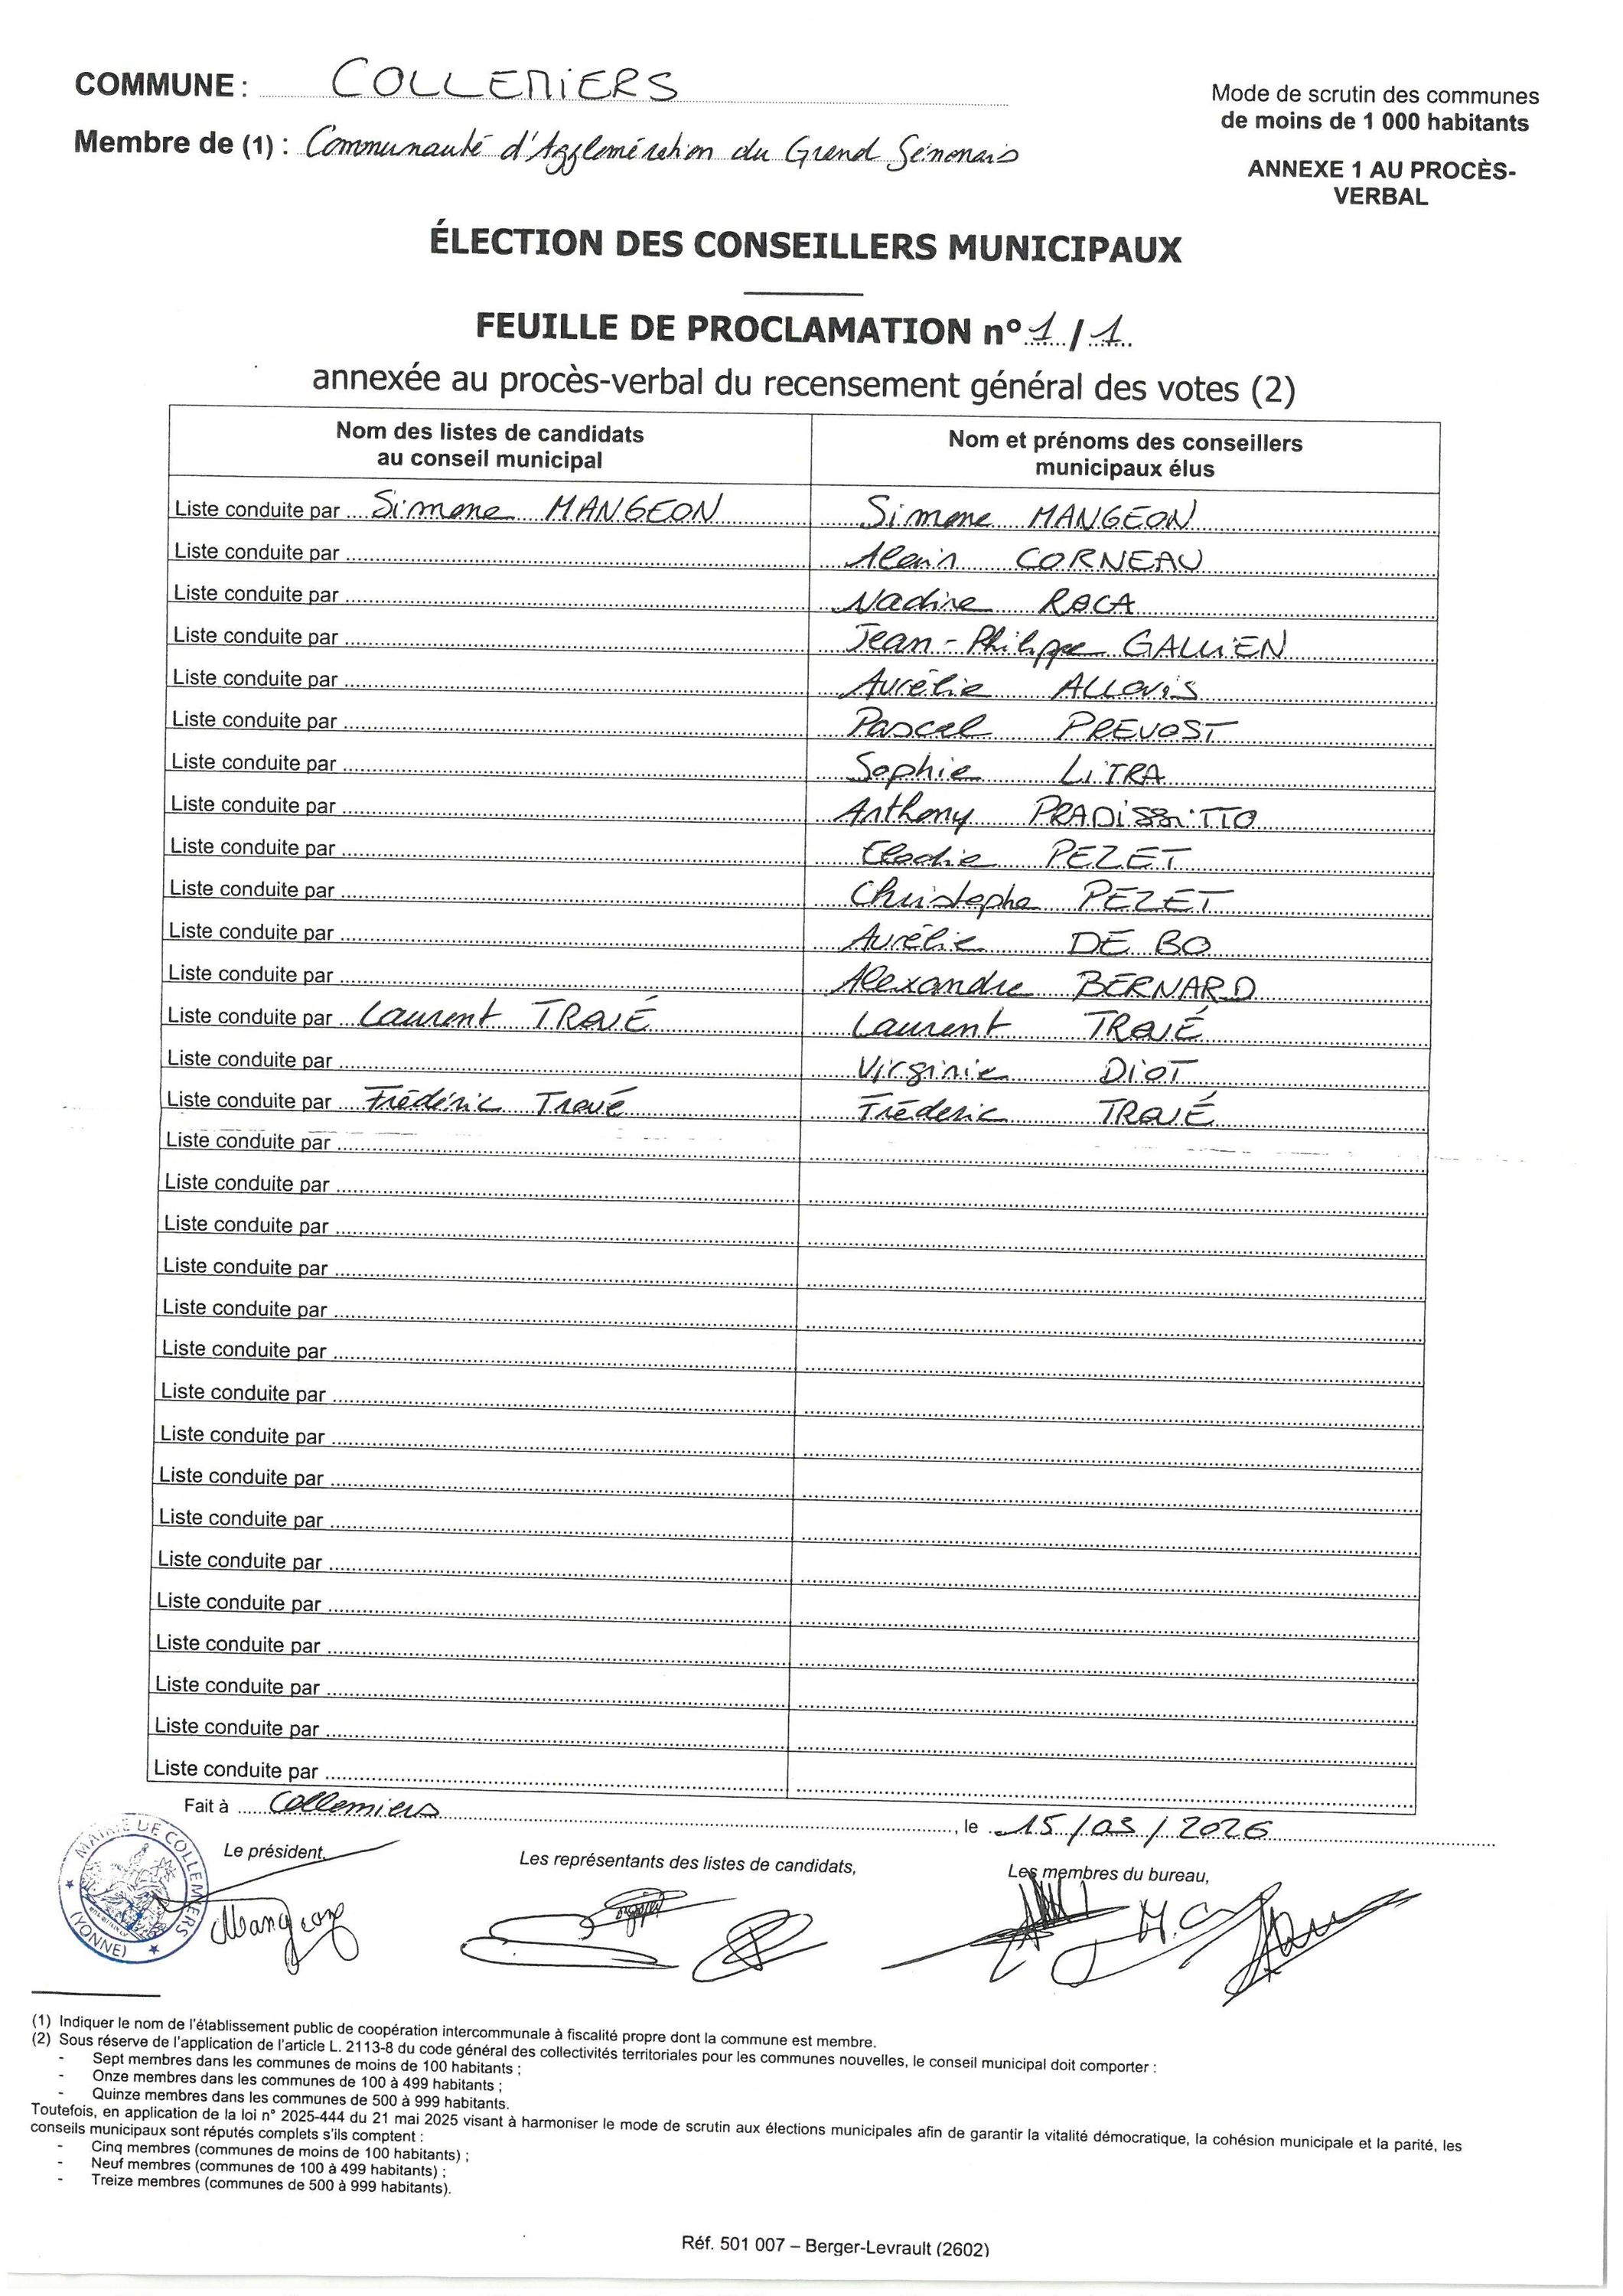 COMMUNE : COLLEMIERS
Membre de (1) : Communauté d'Agglomération du Grand Sénonais
Mode de scrutin des communes
de moins de 1 000 habitants
ANNEXE 1 AU PROCÈS-
VERBAL
ÉLECTION DES CONSEILLERS MUNICIPAUX
FEUILLE DE PROCLAMATION n° 1 / 1
annexée au procès-verbal du recensement général des votes (2)
Nom des listes de candidats
au conseil municipal
Nom et prénoms des conseillers
municipaux élus
Liste conduite par Simone MANGEON Simone MANGEON
Liste conduite par Alain CORNEAU
Liste conduite par Nadine RACA
Liste conduite par Jean-Philippe GALLIEN
Liste conduite par Aurélie
Liste conduite par Pascal PREVOST
Liste conduite par Sophie LITRA
Liste conduite par Anthony
Liste conduite par Elodie PEZET
Liste conduite par Christophe PEZET
Liste conduite par Aurélie DE BO
Liste conduite par Alexandre BERNARD
Liste conduite par Laurent TROUÉ Laurent TROUÉ
Liste conduite par Virginie DIOT
Liste conduite par Frédéric Troué Fréderic TROUÉ
Liste conduite par
Liste conduite par
Liste conduite par
Liste conduite par
Liste conduite par
Liste conduite par
Liste conduite par
Liste conduite par
Liste conduite par
Liste conduite par
Liste conduite par
Liste conduite par
Liste conduite par
Liste conduite par
Liste conduite par
Liste conduite par
Fait à Collemiers, le 15/03/2026
MAIRIE DE COLLEMIERS
(YONNE)
Le président,
Les représentants des listes de candidats,
Les membres du bureau,
(1) Indiquer le nom de l'établissement public de coopération intercommunale à fiscalité propre dont la commune est membre.
(2) Sous réserve de l'application de l'article L. 2113-8 du code général des collectivités territoriales pour les communes nouvelles, le conseil municipal doit comporter :
- Sept membres dans les communes de moins de 100 habitants ;
- Onze membres dans les communes de 100 à 499 habitants ;
- Quinze membres dans les communes de 500 à 999 habitants.
Toutefois, en application de la loi n° 2025-444 du 21 mai 2025 visant à harmoniser le mode de scrutin aux élections municipales afin de garantir la vitalité démocratique, la cohésion municipale et la parité, les
conseils municipaux sont réputés complets s'ils comptent :
- Cinq membres (communes de moins de 100 habitants) ;
- Neuf membres (communes de 100 à 499 habitants) ;
- Treize membres (communes de 500 à 999 habitants).
Réf. 501 007 – Berger-Levrault (2602)